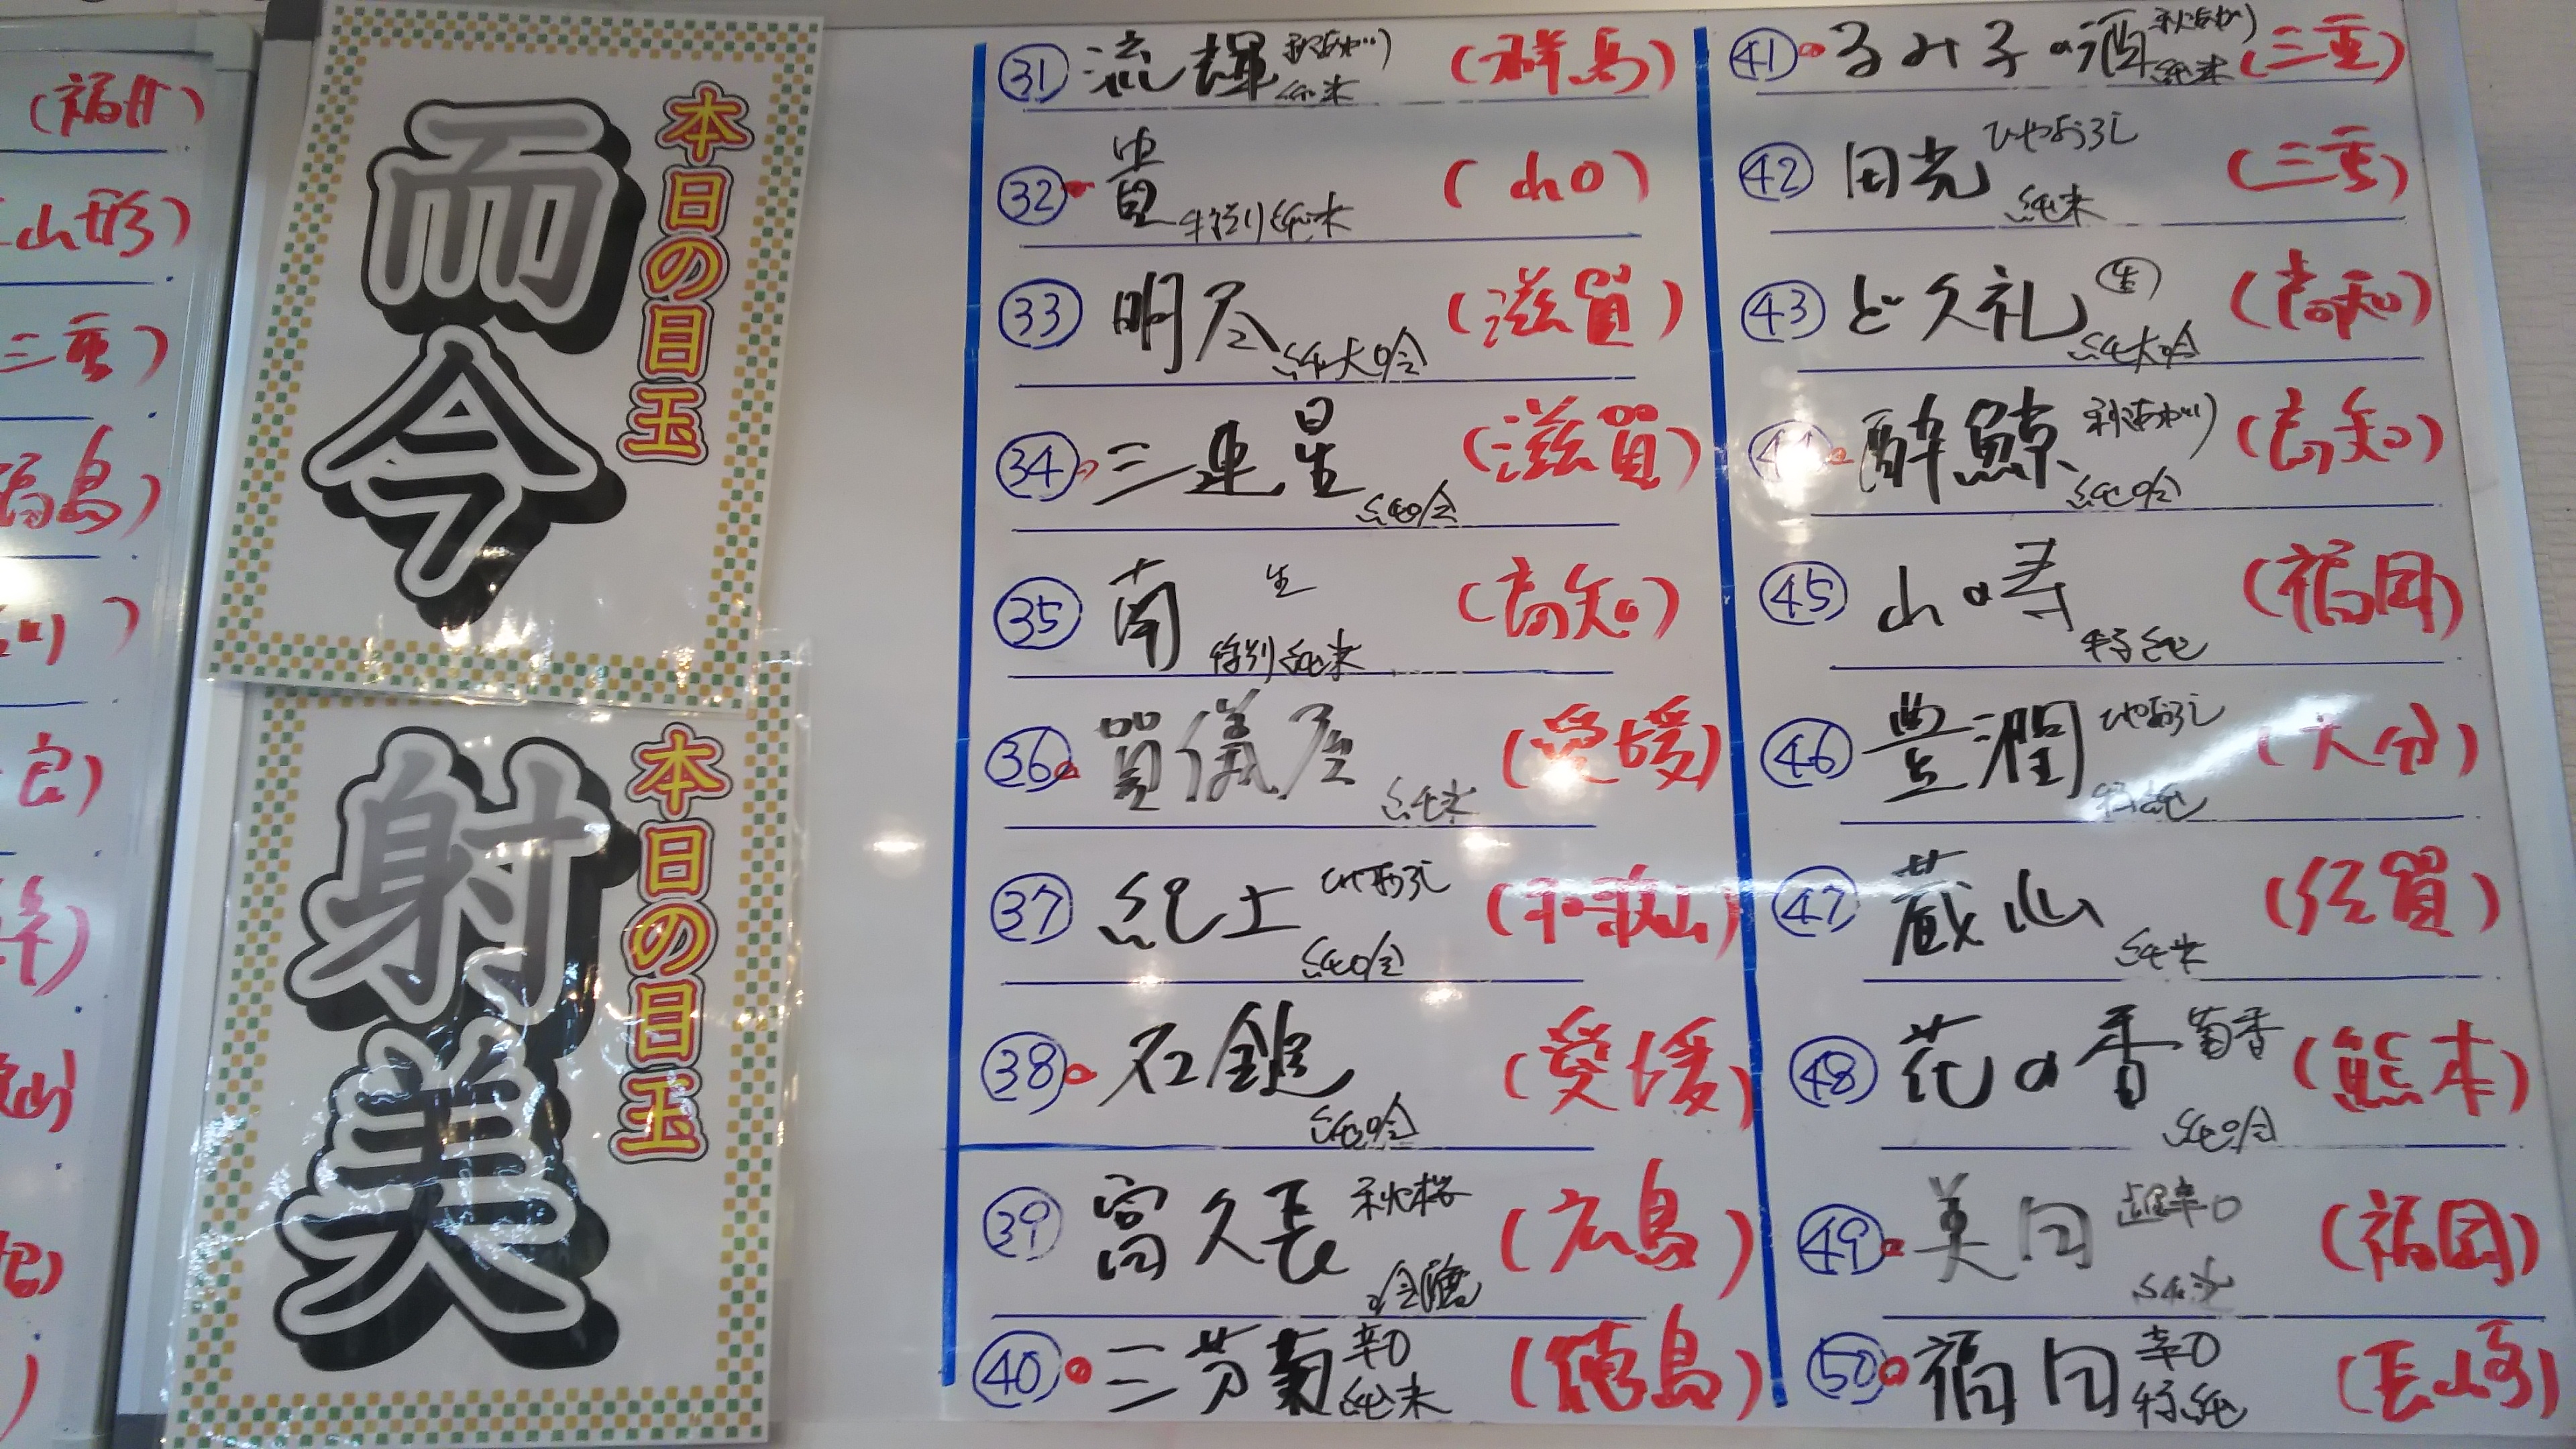 (福井)
山形)
三重)
福島)
川)
良)
山)
)
本日の目玉
而今
本日の目玉
射美
㉛ 流輝 秋あがり 純米 (群馬)
㉜ 貴 特別純米 (山口)
㉝ 明尽 純大吟 (滋賀)
㉞ 三連星 純吟 (滋賀)
㉟ 南 生 特別純米 (高知)
㊱ 賀儀屋 純米 (愛媛)
㊲ 紀土 ひやおろし 純吟 (和歌山)
㊳ 石鎚 純吟 (愛媛)
㊴ 富久長 秋桜 吟醸 (広島)
㊵ 三芳菊 辛口 純米 (徳島)
㊶ るみ子の酒 秋あがり 純米 (三重)
㊷ 田光 ひやおろし 純米 (三重)
㊸ ど久礼 生 純大吟 (高知)
㊹ 酔鯨 秋あがり 純吟 (高知)
㊺ 山の寿 特純 (福岡)
㊻ 豊潤 ひやおろし 特純 (大分)
㊼ 蔵心 純米 (佐賀)
㊽ 花の香 菊香 純吟 (熊本)
㊾ 美田 超辛口 純米 (福岡)
㊿ 福田 辛口 特純 (長崎)